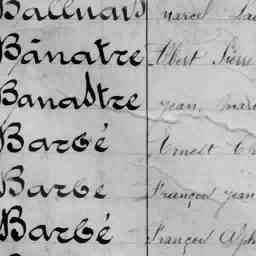 Balluais Marcel
Bânatre Albert Pierre
Banastre Jean Marie
Barbé Ernest
Barbe François Jean
Barbé François Alph